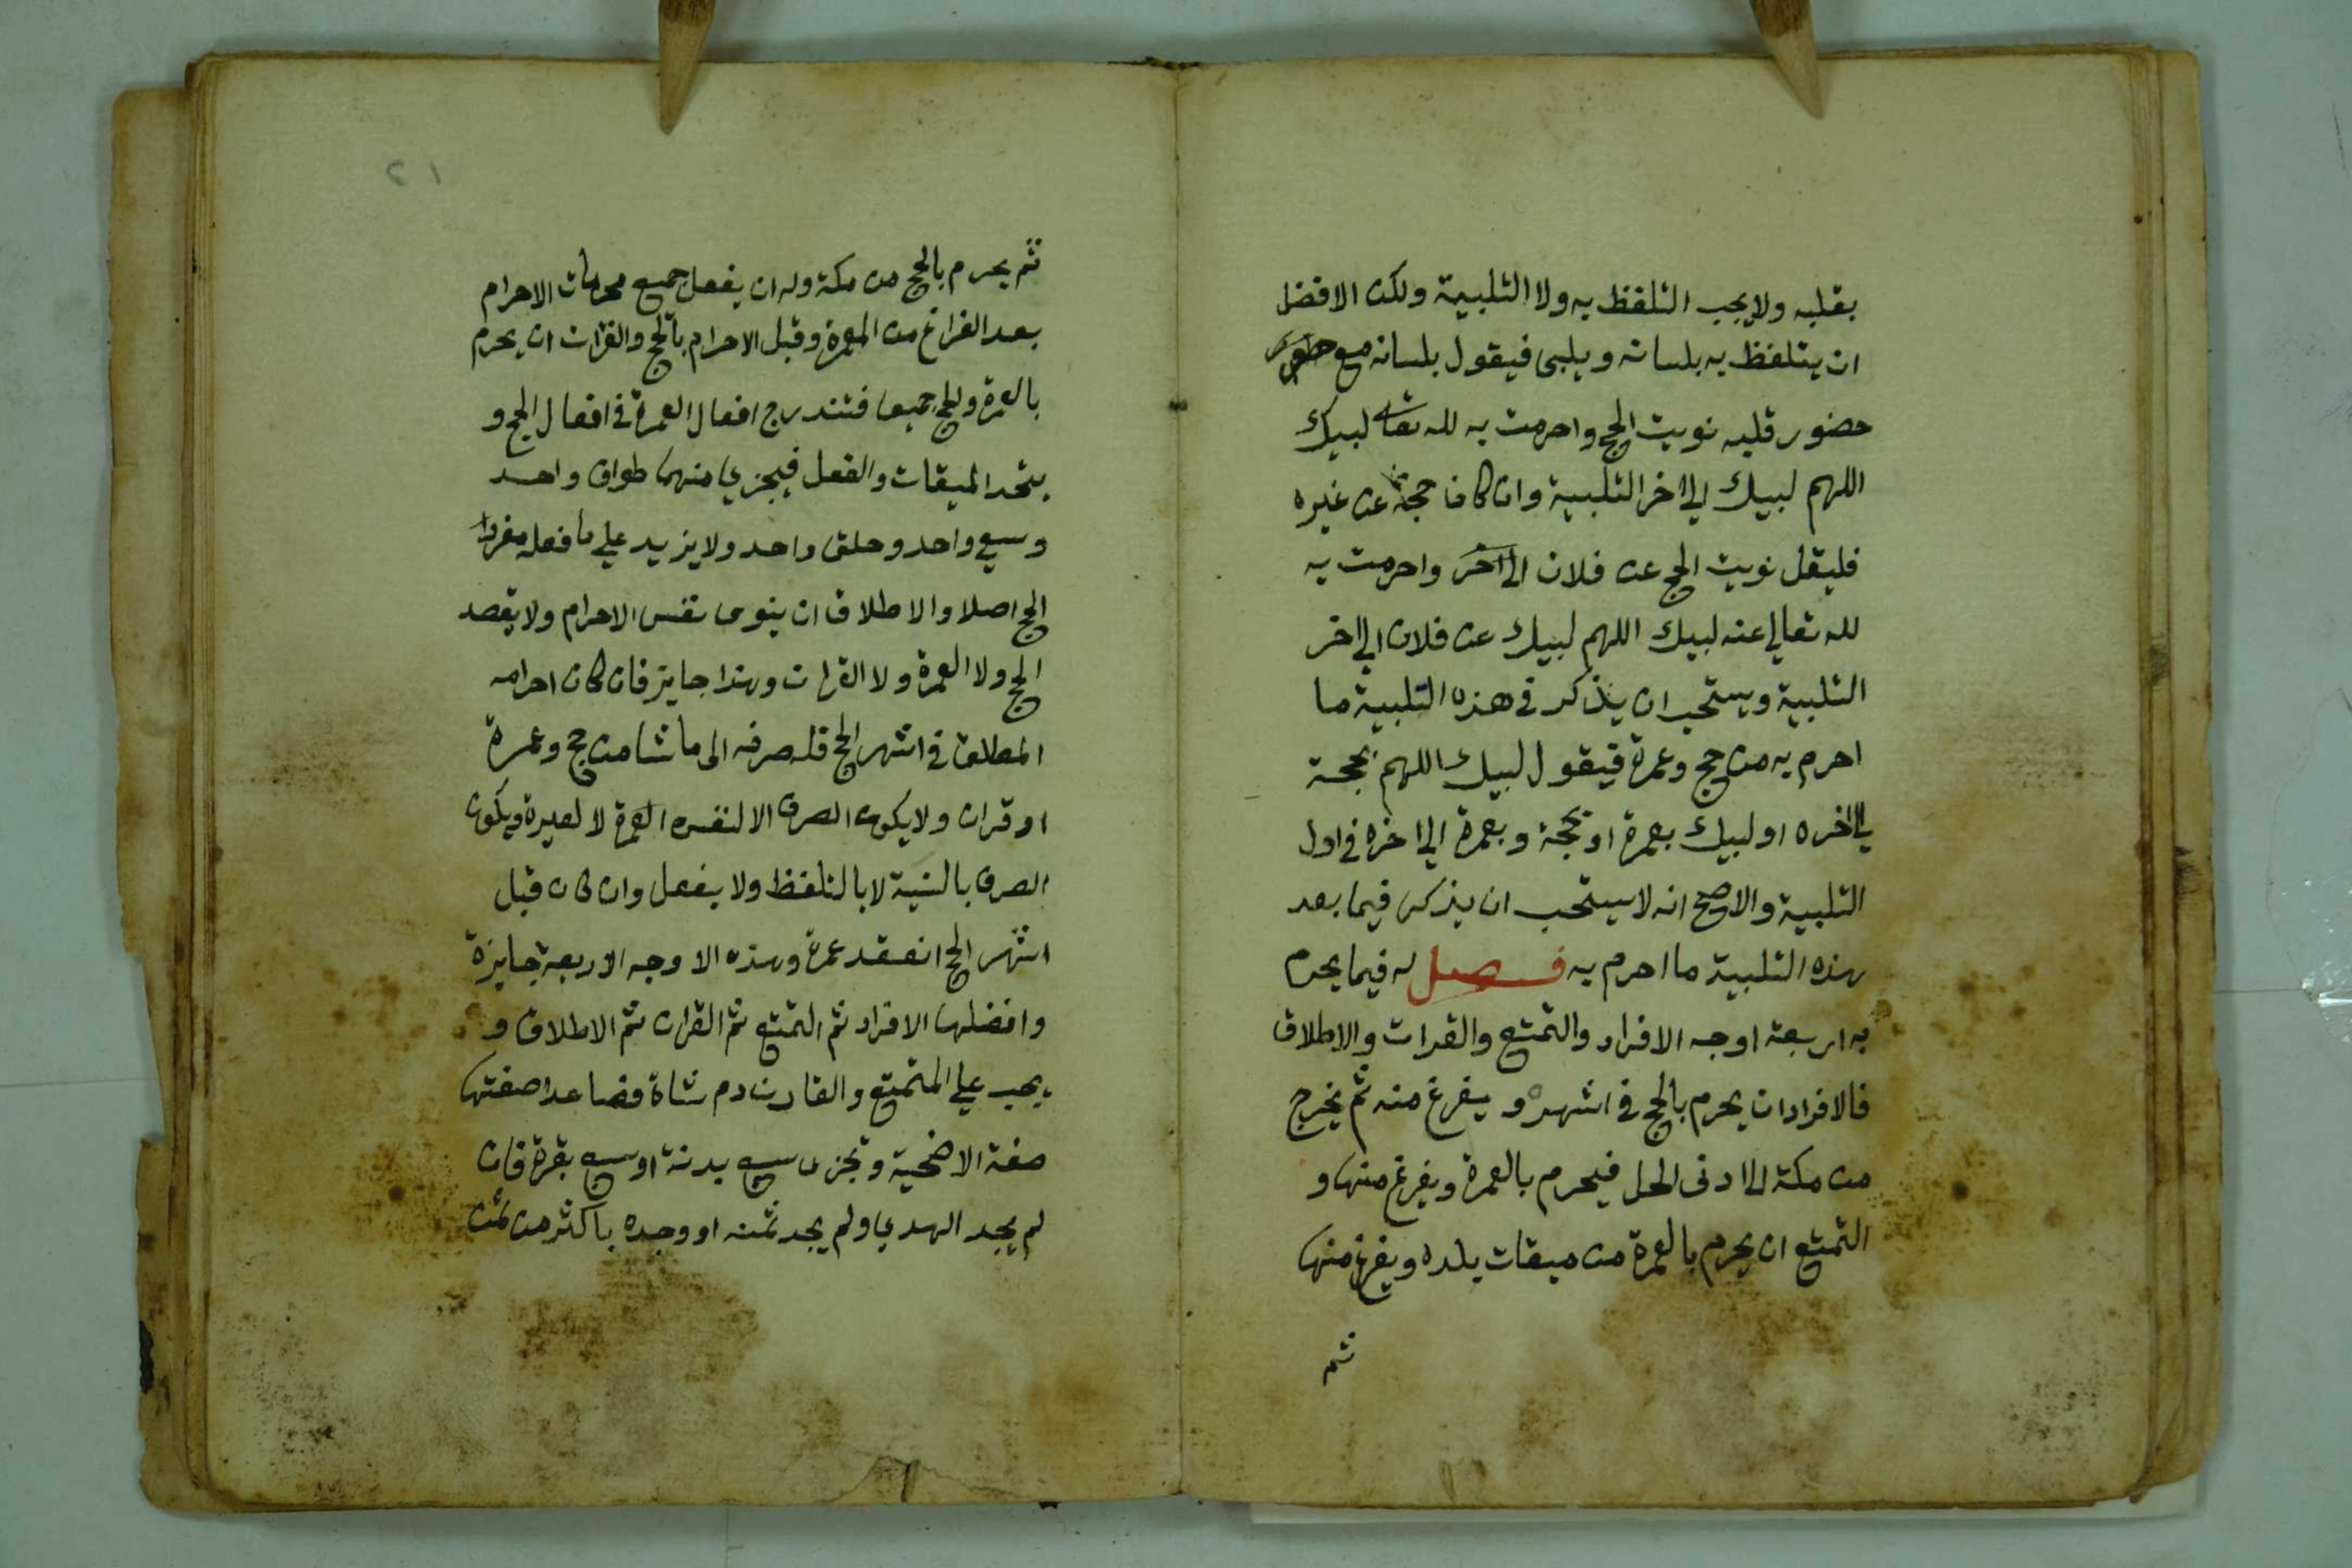 بقلبه ولا يجب التلفظ به ولا التلبية ولكن الافضل
ان يتلفظ به بلسانه ويلبي فيقول بلسانه مع
حضور قلبه نويت الحج واحرمت به لله تعالى لبيك
اللهم لبيك الي اخر التلبية وان كان حجة عن غيره
فليقل نويت الحج عن فلان الى اخر واحرمت به
لله تعالي عنه لبيك اللهم لبيك عن فلان الي اخر
التلبية ويستحب ان يذكر في هذه التلبية ما
احرم به من حج وعمرة فيقول لبيك اللهم بحجة
الي اخره او لبيك بعمرة او بحجة وبعمرة الي اخره في اول
التلبية والاصح انه لا يستحب ان يذكر فيما بعد
هذه التلبية ما احرم به فصل له فيما يحرم
به اربعة اوجه الافراد والتمتع والقران والاطلاق
فالافراد ان يحرم بالحج في اشهره ويفرغ منه ثم يخرج
من مكة الي ادنى الحل فيحرم بالعمرة ويفرغ منها و
التمتع ان يحرم بالعمرة من ميقات بلده ويفرغ منها
ثم
٢١
ثم يحرم بالحج من مكة وله ان يفعل جميع محرمات الاحرام
بعد الفراغ من العمرة وقبل الاحرام بالحج والقران ان يحرم
بالعمرة والحج جميعا فتندرج افعال العمرة في افعال الحج و
يتحد الميقات والفعل فيجزي منهما طواف واحد
وسعي واحد وحلق واحد ولا يزيد علي ما فعله مفرد
الحج اصلا والاطلاق ان ينوى نفس الاحرام ولا يقصد
الحج ولا العمرة ولا القران وهذا جايز فان كان احرامه
المطلق في اشهر الحج فله صرفه الى ما شا من حج وعمرة
او قران ولا يكون الصرف الا لنفس العمرة لا لغيره ويكون
الصرف بالنية لا بالتلفظ ولا بفعل وان كان قبل
اشهر الحج انعقد عمرة وهذه الاوجه الاربعة جايزة
وافضلها الافراد ثم التمتع ثم القران ثم الاطلاق و
يجب علي المتمتع والقارن دم شاة فصاعدا صفتها
صفة الاضحية وتجزى سبع بدنة او سبع بقرة فان
لم يجد الهدي اولم يجد ثمنه او وجده باكثر من ثمن